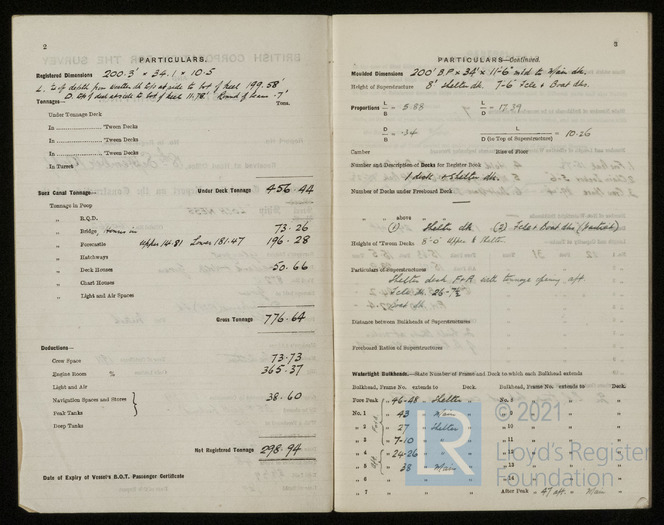 2
PARTICULARS.
Registered Dimensions 200.3' × 34.1 × 10.5
199.58'
D. 11.78'
Tonnages— Tons.
Under Tonnage Deck
In 'Tween Decks
In 'Tween Decks
In 'Tween Decks
In Turret
Suez Canal Tonnage— Under Deck Tonnage 456.44
Tonnage in Poop
„ R.Q.D.
„ Bridge Houses in 73.26
„ Forecastle Upper 14.81 Lower 181.47 196.28
„ Hatchways
„ Deck Houses 50.66
„ Chart Houses
„ Light and Air Spaces
Gross Tonnage 776.64
Deductions—
Crew Space 73.73
Engine Room 365.37
Light and Air
Navigation Spaces and Stores } 38.60
Peak Tanks
Deep Tanks
Net Registered Tonnage 298.94
Date of Expiry of Vessel's B.O.T. Passenger Certificate
3
PARTICULARS—Continued.
Moulded Dimensions 200' B.P. × 34' × 11'-6" mld to Main dk.
Height of Superstructure 8' Shelter dk. 7'-6" Fcle & Boat dks.
Proportions L/B = 5.88 L/D = 17.39
D/B = .34 L/D (to Top of Superstructure) = 10.26
Camber Rise of Floor
Number and Description of Decks for Register Book
1 deck & Shelter dk.
Number of Decks under Freeboard Deck —
„ „ above „
(1) Shelter dk (2) Fcle & Boat dks (partial)
Heights of 'Tween Decks 8'-0" Upper & Shelter.
Particulars of Superstructures
Shelter deck, F & A with tonnage opening aft.
Distance between Bulkheads of Superstructures
Freeboard Ratios of Superstructures
Watertight Bulkheads.—State Number of Frame and Deck to which each Bulkhead extends
Bulkhead, Frame No. extends to Deck. Bulkhead, Frame No. extends to Deck.
Fore Peak „ 46-48 „ Shelter „ No. 8
No. 1 „ 43 „ Main „ „ 9
„ 2 „ 27 „ Shelter „ „ 10
„ 3 „ 7-10 „ „ 11
„ 4 „ 24-26 „ „ 12
„ 5 „ 38 „ Main „ „ 13
„ 6 „ 14
„ 7 After Peak „ 47 aft. „ Main „
© 2021
LR
Lloyd's Register
Foundation